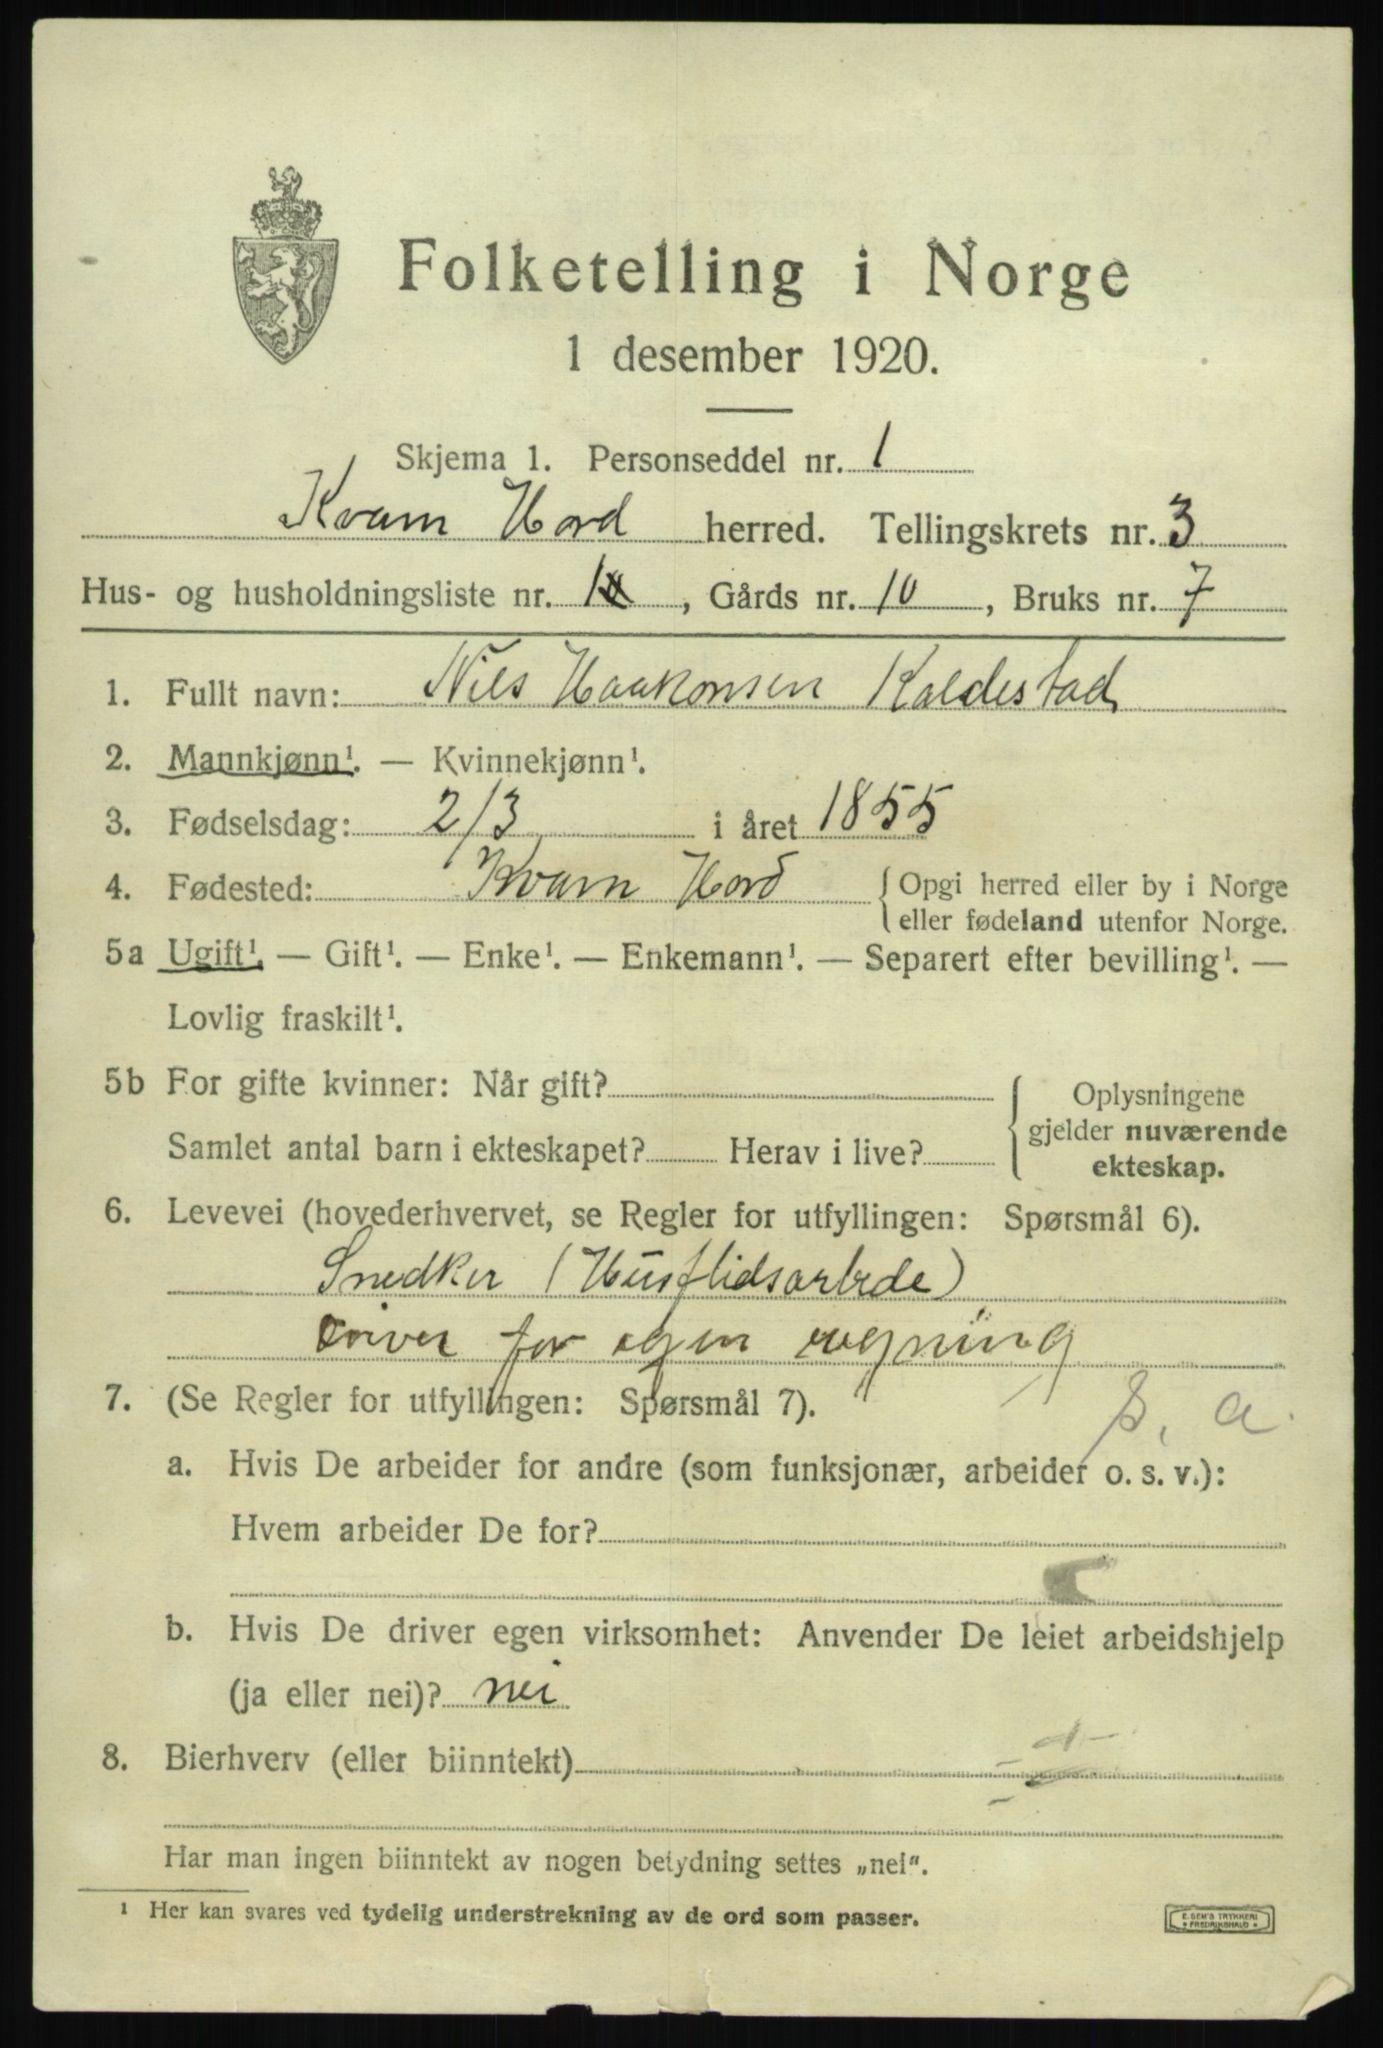 Folketelling i Norge
1 desember 1920.
Skjema 1. Personseddel nr. 1
Kvam Hord herred. Tellingskrets nr. 3
Hus- og husholdningsliste nr. 1, Gårds nr. 10, Bruks nr. 7
1. Fullt navn: Nils Haakonsen Kaldestad
2. Mannkjønn¹. — Kvinnekjønn¹.
3. Fødselsdag: 2/3 i året 1855
4. Fødested: Kvam Hord { Opgi herred eller by i Norge
eller fødeland utenfor Norge.
5a Ugift¹. — Gift¹. — Enke¹. — Enkemann¹. — Separert efter bevilling¹. —
Lovlig fraskilt¹.
5b For gifte kvinner: Når gift? { Oplysningene
gjelder nuværende
Samlet antal barn i ekteskapet? Herav i live?
ekteskap.
6. Levevei (hovederhvervet, se Regler for utfyllingen: Spørsmål 6).
Snedker (Husflidsarbede)
Driver for egen regning
7. (Se Regler for utfyllingen: Spørsmål 7). a.
a. Hvis De arbeider for andre (som funksjonær, arbeider o. s. v.):
Hvem arbeider De for?
b. Hvis De driver egen virksomhet: Anvender De leiet arbeidshjelp
(ja eller nei)? nei
8. Bierhverv (eller biinntekt)
Har man ingen biinntekt av nogen betydning settes „nei“.
¹ Her kan svares ved tydelig understrekning av de ord som passer.
E. SEM'S TRYKKERI
* FREDRIKSHALD *